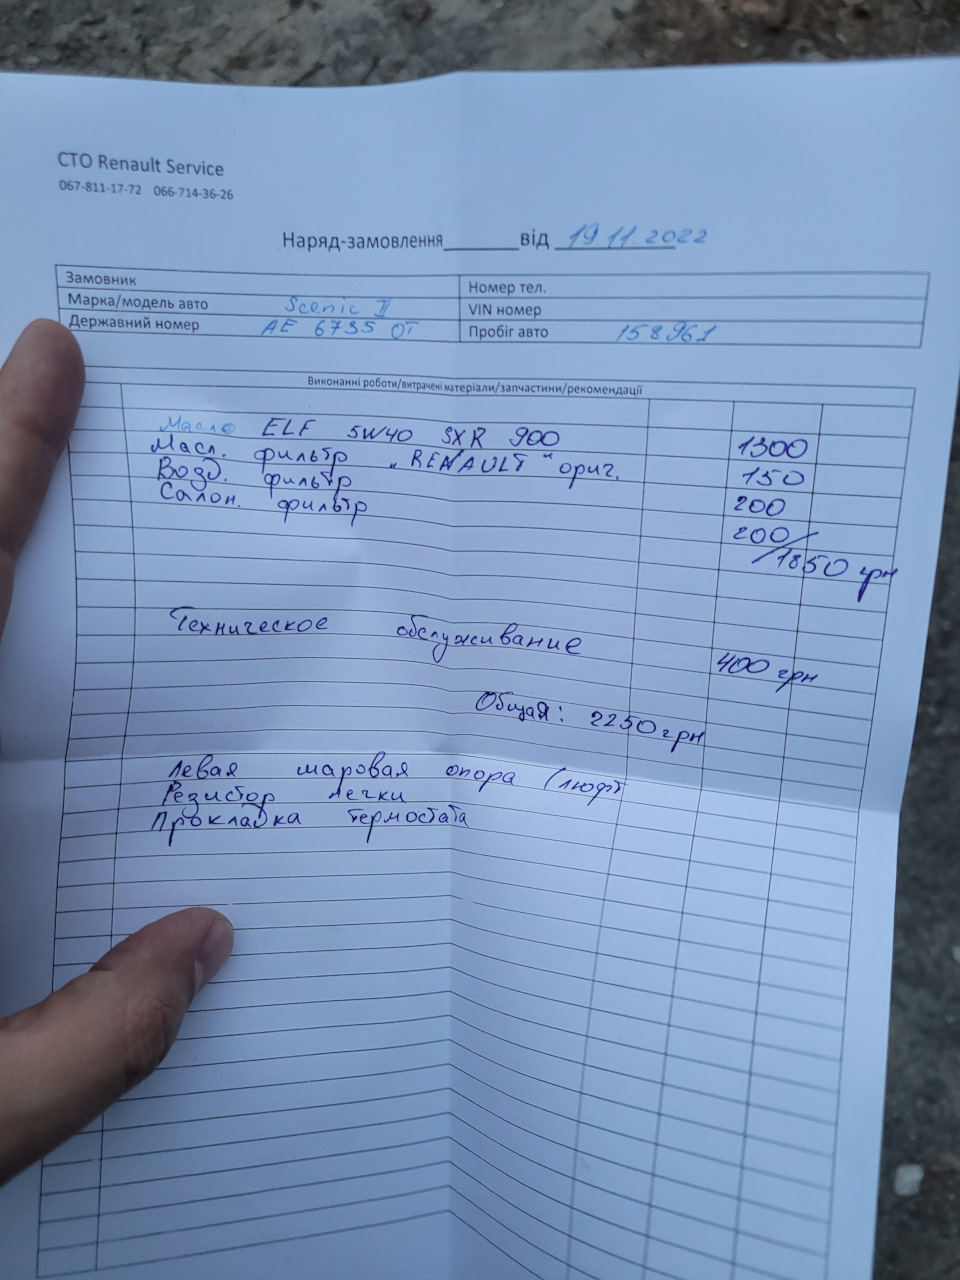 СТО Renault Service
067-811-17-72 066-714-36-26
Наряд-замовлення_______від 19.11.2022
Замовник
Номер тел.
Марка/модель авто Scenic II
VIN номер
Державний номер AE 6735 OT
Пробіг авто 158961
Виконанні роботи/витрачені матеріали/запчастини/рекомендації
Масло ELF 5W40 SXR 900 1300
Масл. фильтр „RENAULT“ ориг. 150
Возд. фильтр 200
Салон. фильтр 200
1850 грн
Техническое обслуживание 400 грн
Общая: 2250 грн
Левая шаровая опора (люфт
Резистор печки
Прокладка термостата